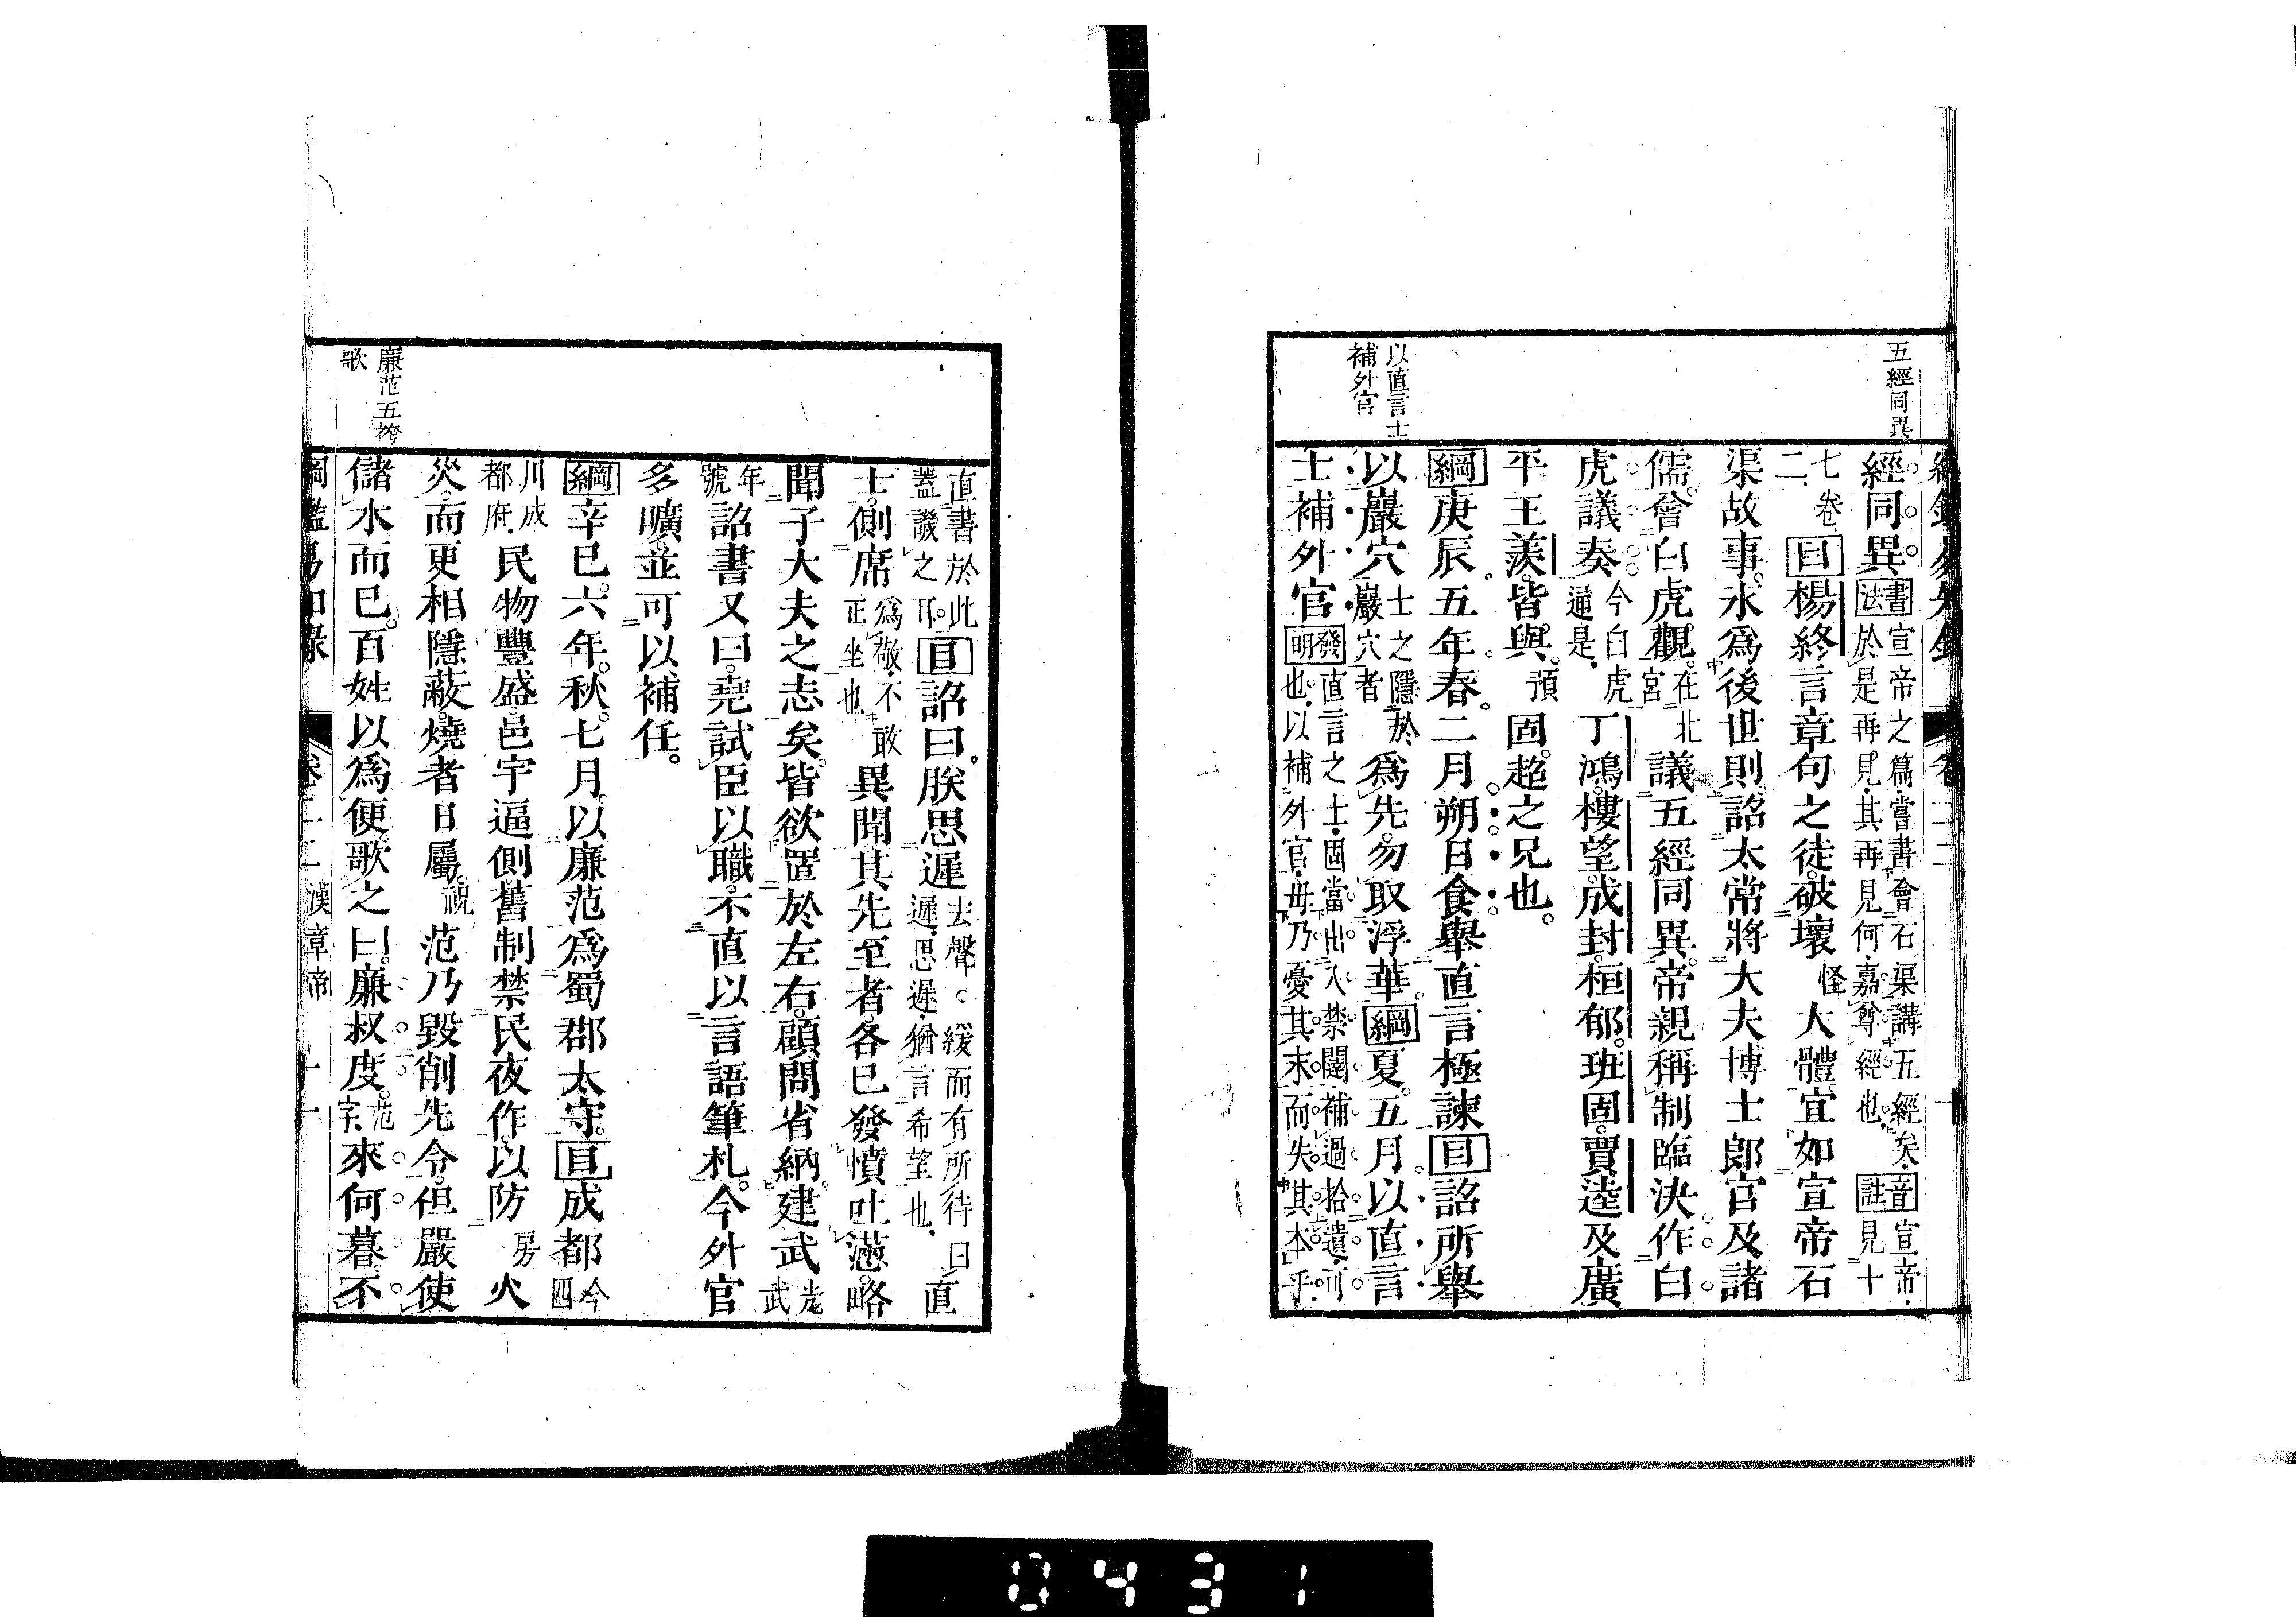 綱鑑易知錄 卷二二 十
五經同異
經同異書法宣帝之篇嘗書會石渠講五經矣音註宣帝
於是再見其再見何嘉尊經也見十
七卷二目楊終言章句之徒破壞怪大體宜如宣帝石
渠故事永爲後世則詔太常將大夫博士郎官及諸
儒會白虎觀在北宮議五經同異帝親稱制臨決作白
虎議奏今白虎通是丁鴻樓望成封桓郁班固賈逵及廣
平王羨皆與預固超之兄也
綱庚辰五年春二月朔日食舉直言極諫目詔所舉
以直言士補外官
以巖穴士之隱於巖穴者爲先勿取浮華綱夏五月以直言
士補外官發明直言之士固當出入禁闥補過拾遺可
也以補外官毋乃憂其末而失其本乎
直書於此
蓋譏之耳目詔曰朕思遲去聲緩而有所待曰直
遲思遲猶言希望也
士側席爲敬不敢正坐也異聞其先至者各已發憤吐懣略
聞子大夫之志矣皆欲置於左右顧問省納建武光武
年號詔書又曰堯試臣以職不直以言語筆札今外官
多曠並可以補任
綱辛巳六年秋七月以廉范爲蜀郡太守目成都今四
川成都府民物豐盛邑宇逼側舊制禁民夜作以防房火
災而更相隱蔽燒者日屬祝范乃毀削先令但嚴使
廉范五袴歌
儲水而已百姓以爲便歌之曰廉叔度范字來何暮不
綱鑑易知錄 卷二二 漢章帝 十一
0431